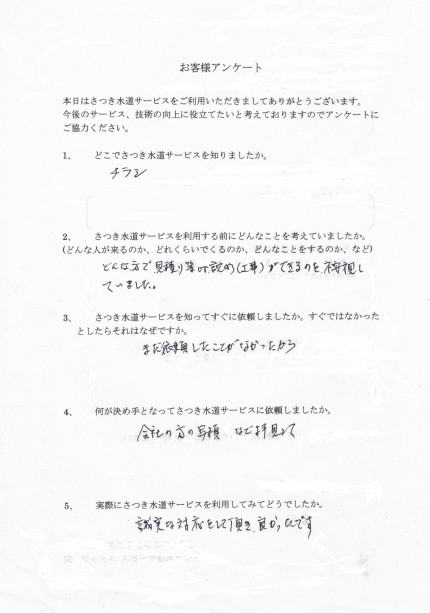 お客様アンケート
本日はさつき水道サービスをご利用いただきましてありがとうございます。
今後のサービス、技術の向上に役立てたいと考えておりますのでアンケートに
ご協力ください。
1、 どこでさつき水道サービスを知りましたか。
チラシ
2、 さつき水道サービスを利用する前にどんなことを考えていましたか。
(どんな人が来るのか、どれくらいでくるのか、どんなことをするのか、など)
どんな方で見積り等 (工事)ができるのを
ていました。
3、 さつき水道サービスを知ってすぐに依頼しましたか。すぐではなかった
としたらそれはなぜですか。
まだ依頼したことがなかったから
4、 何が決め手となってさつき水道サービスに依頼しましたか。
会社の方の写顔 など拝見して
5、 実際にさつき水道サービスを利用してみてどうでしたか。
誠実な対応をして頂き、良かったです